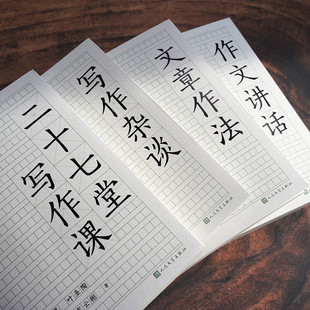 二十七堂
写作课
叶圣陶
云彬 著
写作杂谈
人民文学出版社
文章作法
人民文学出版社
作文讲话
人民文学出版社